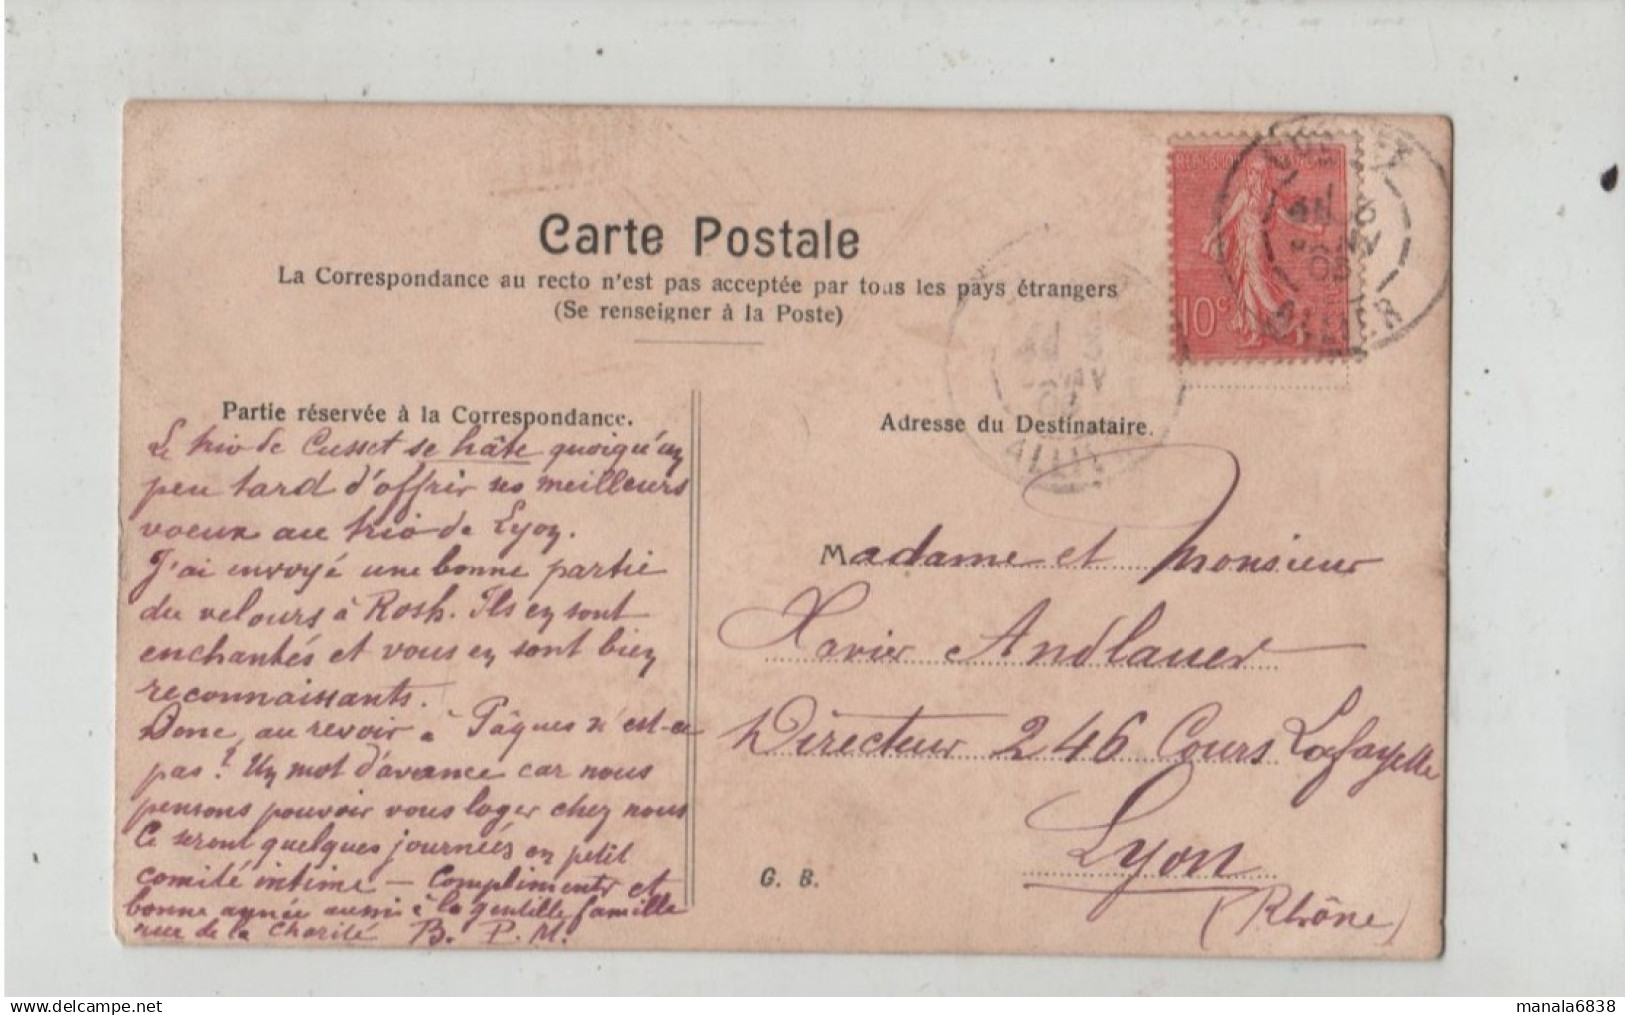 Carte Postale
La Correspondance au recto n'est pas acceptée par tous les pays étrangers
(Se renseigner à la Poste)
REPUBLIQUE FRANÇAISE
10c
CUSSET
05
ALLIER
ALLIER
Partie réservée à la Correspondance.
Le trio de Cusset se hâte quoiqu'un
peu tard d'offrir ses meilleurs
voeux au trio de Lyon.
J'ai envoyé une bonne partie
du velours à Rosh. Ils en sont
enchantés et vous en sont bien
reconnaissants.
Donc, au revoir à Pâques n'est-ce
pas? Un mot d'avance car nous
pensons pouvoir vous loger chez nous
Ce seront quelques journées en petit
comité intime — Compliments et
bonne année aussi à la gentille famille
rue de la Charité B. P. M.
Adresse du Destinataire.
Madame et Monsieur
Xavier Andlauer
Directeur 246 Cours Lafayette
Lyon
(Rhône)
G. B.
manala6838